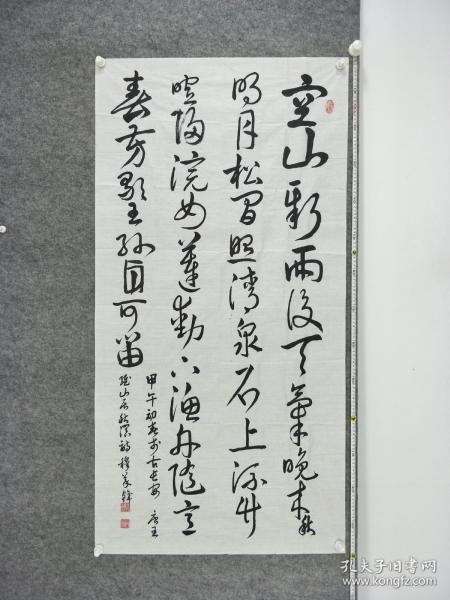 空山新雨後天氣晚来秋
明月松間照清泉石上流竹
喧歸浣女蓮動下漁舟隨意
春芳歇王孫自可留
甲午初春於古長安 唐王
維山居秋暝詩
孔夫子旧书网
www.kongfz.com